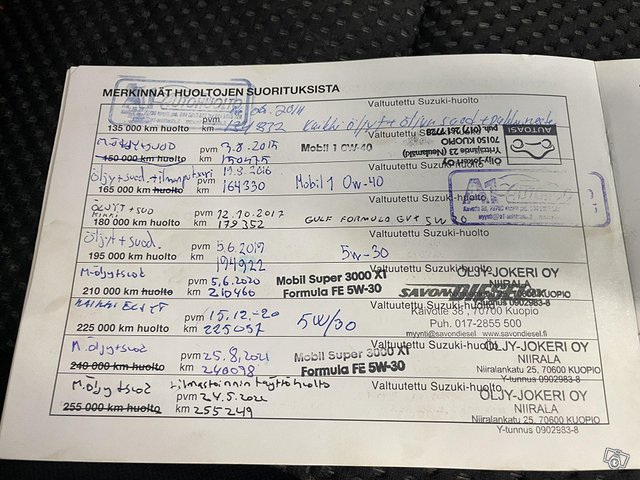 MERKINNÄT HUOLTOJEN SUORITUKSISTA
pvm 2014 Valtuutettu Suzuki-huolto
135 000 km huolto km Kaikki öljyt + öljyn suod +
AUTOASI
Öljy-Jokeri OY
Yrittäjäntie 23 (Neulamäki)
70150 KUOPIO
M-ÖLJY+SUOD pvm 3.8.2015 Valtuutettu Suzuki-huolto
150 000 km huolto km 150475 Mobil 1 0W-40
Öljy+suod.+ilmanputsari pvm 19.8.2016 Valtuutettu Suzuki-huolto
165 000 km huolto km 164330 Mobil 1 0w-40
ÖLJYT+SUO pvm 12.10.2017 Valtuutettu Suzuki-huolto
180 000 km huolto km 179352 GULF FORMULA GVX 5W30
Öljyt+suod. pvm 5.6.2019 Valtuutettu Suzuki-huolto
195 000 km huolto km 194922 5w-30
M-öljyt+suod pvm 5.6.2020 Mobil Super 3000 X1 Valtuutettu Suzuki-huolto ÖLJY-JOKERI OY
210 000 km huolto km 210460 Formula FE 5W-30 NIIRALA
SAVON DIESEL
KAIKKI ÖLJYT pvm 15.12.-20 Valtuutettu Suzuki-huolto
Kaivotie 38, 70700 Kuopio
225 000 km huolto km 225057 5W/30 Puh. 017-2855 500
myynti@savondiesel www.savondiesel.fi
M.öljy+suod pvm 25.8.2021 Mobil Super 3000 X1 Valtuutettu Suzuki-huolto ÖLJY-JOKERI OY
240 000 km huolto km 240098 Formula FE 5W-30 NIIRALA
Niiralankatu 25, 70600 KUOPIO
Y-tunnus 0902983-8
M.öljy+suod ilmastoinnin täyttöhuolto
pvm 24.5.2022 Valtuutettu Suzuki-huolto ÖLJY-JOKERI OY
255 000 km huolto km 255249 NIIRALA
Niiralankatu 25, 70600 KUOPIO
Y-tunnus 0902983-8